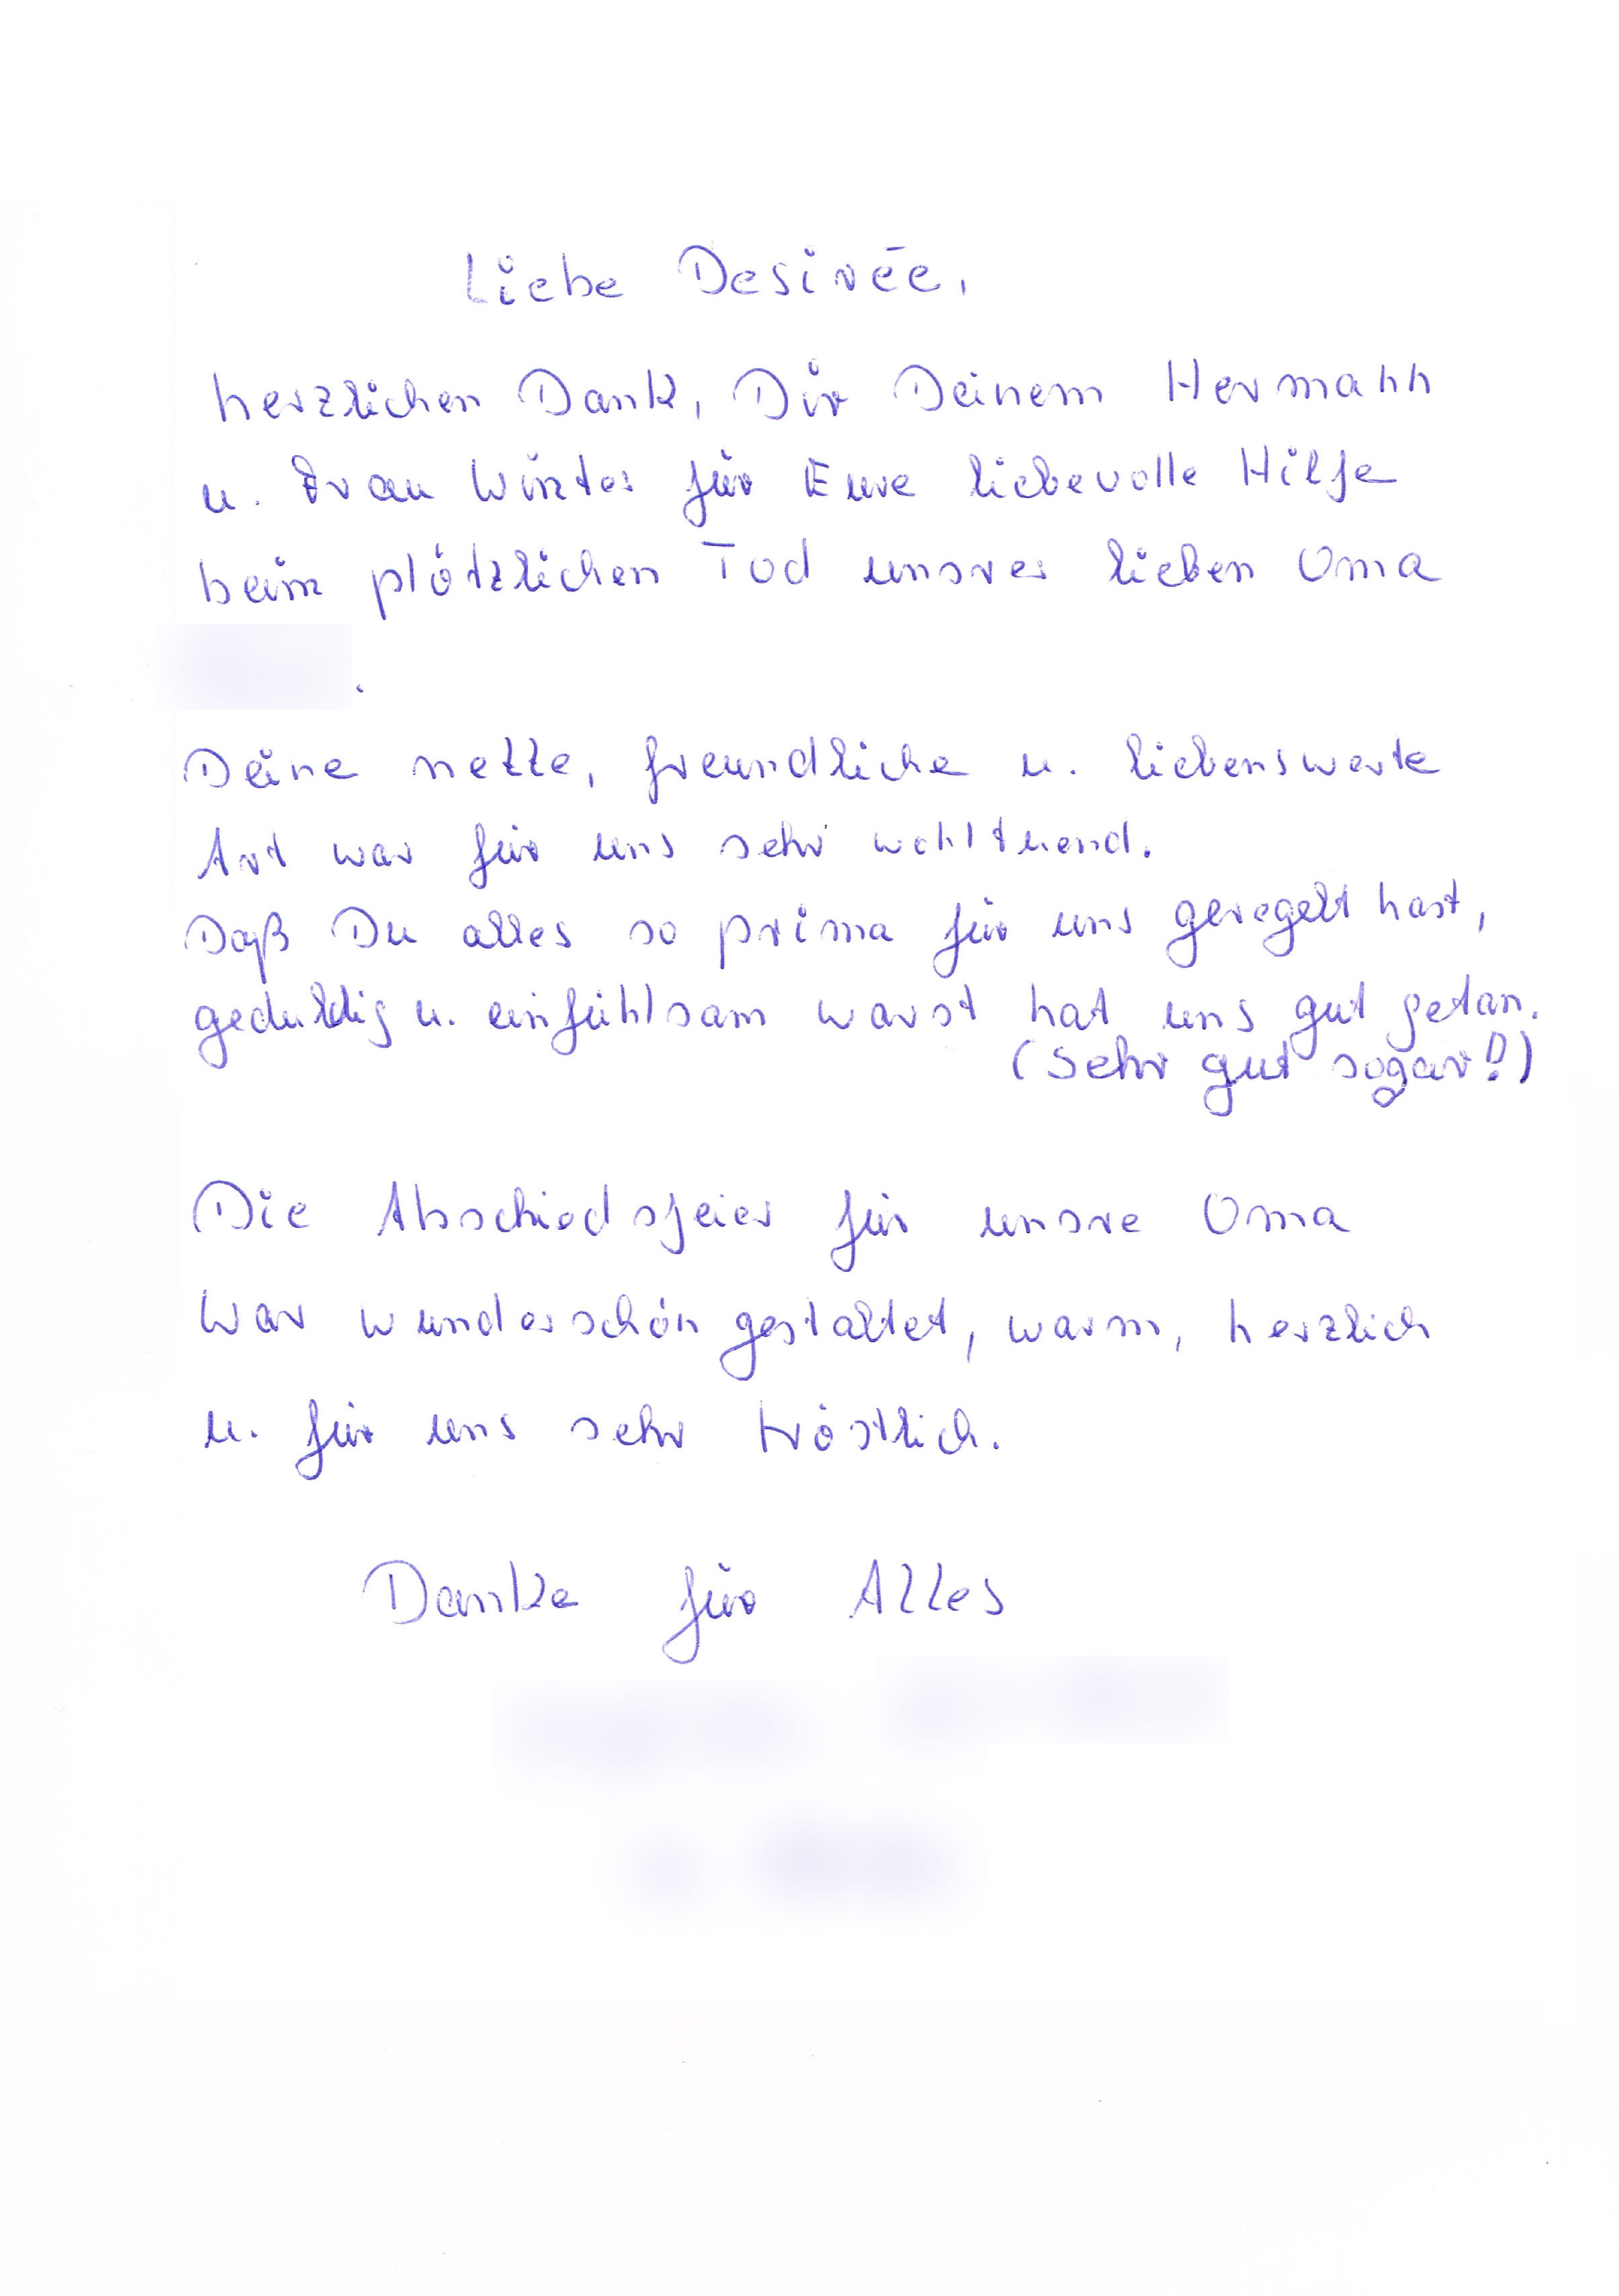 Liebe Desirée,
herzlichen Dank, Dir Deinem Hermann
u. Frau Winter für Eure liebevolle Hilfe
beim plötzlichen Tod unsrer lieben Oma
.
Deine nette, freundliche u. liebenswerte
Art war für uns sehr wohltuend.
Daß Du alles so prima für uns geregelt hast,
geduldig u. einfühlsam warst hat uns gut getan.
(Sehr gut sogar!)
Die Abschiedsfeier für unsre Oma
war wunderschön gestaltet, warm, herzlich
u. für uns sehr tröstlich.
Danke für Alles